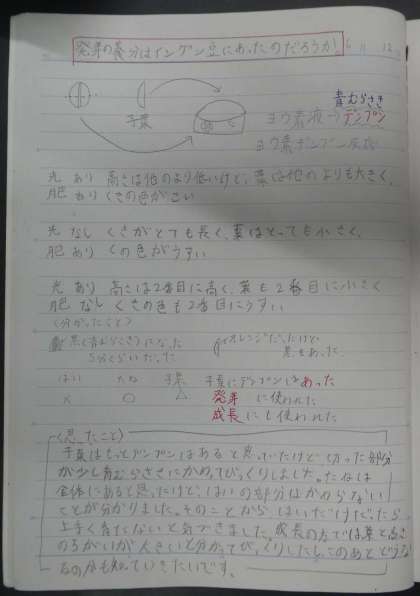 発芽の養分はインゲン豆にあったのだろうか。 6月 12
子葉
青むらさき
ヨウ素液→デンプン
ヨウ素デンプン反応
光 あり 高さは他のより低いけど、葉は他のよりも大きく、
肥 あり くきの色がこい
光 なし くきがとても長く、葉はとっても小さく、
肥 あり くきの色がうすい
光 あり 高さは2番目に高く、葉も2番目に小さく
肥 なし くきの色も2番目にうすい
(分かったこと)
黒(青むらさき)になった オレンジだったけど
5分くらいたった 黒もあった
はい たね 子葉 子葉にデンプンはあった
× ○ △ 発芽 に使われた
成長にも使われた
(思ったこと)
子葉はもっとデンプンはあると思っていたけど、切った部分
が少し青むらさきにかわってびっくりしました。たねは
全体にあると思ったけど、はいの部分はかわらない
ことが分かりました。そのことから はいだけだったら
上手く育たないと気づきました。成長の方では葉と高さ
のちがいが大きいと分かってびっくりしたし、このあとどうなる
のかも知っていきたいです。